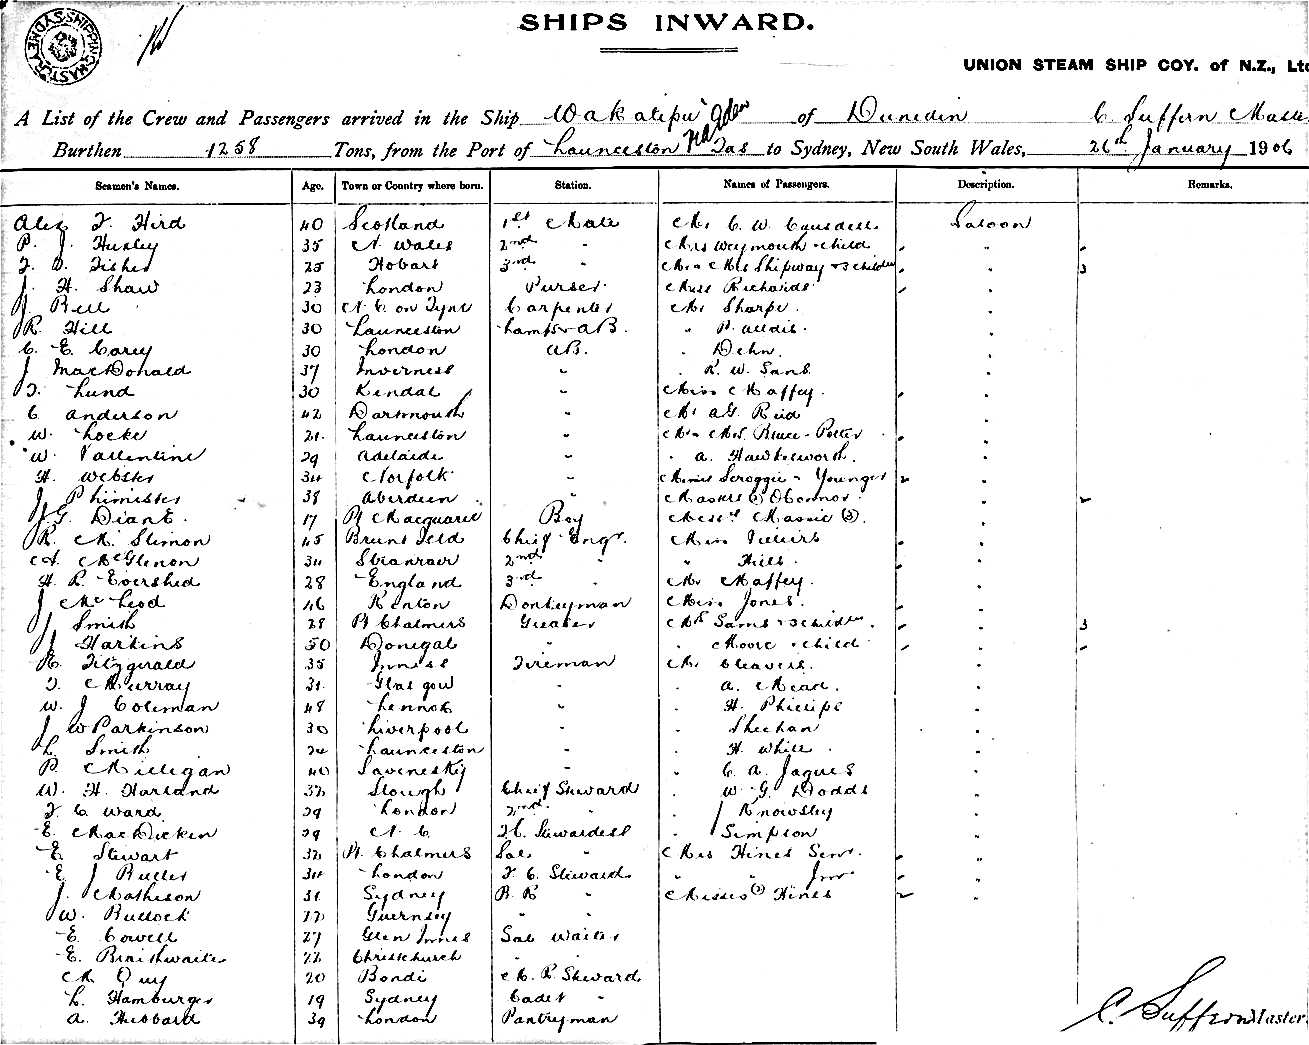 SHIPPING MASTER SYDNEY
SHIPS INWARD.
UNION STEAM SHIP COY. of N.Z., Ltd
A List of the Crew and Passengers arrived in the Ship Wakatipu of Dunedin C. Suffern Master
Burthen 1258 Tons, from the Port of Launceston Tas to Sydney, New South Wales, 26th January 1906
Seamen's Names. Age. Town or Country where born. Station. Names of Passengers. Description. Remarks.
Alex F. Hird 40 Scotland 1st Mate Mr C. W. Saloon
P. J. Huxley 35 N. Wales 2nd " Mrs Weymouth & child "
Fisher 25 Hobart 3rd " Mr & Mrs Shipway & 3 children " 3
J. H. Shaw 23 London Purser Miss Richards "
J. Bell 30 N. C. on Tyne Carpenter Mr Sharpe "
R. Hill 30 Launceston Lamps & AB. " P. "
C. E. Carey 30 London AB. " Dehn "
J MacDonald 37 Inverness " " R. W. Sans "
T. Lund 30 Kendal " Miss Maffey "
C Anderson 42 Dartmouth " Mr A G. Reid "
W. Locke 21 Launceston " Mr & Mrs Bruce-Potter "
W. Vallentine 29 Adelaide " " A. Hawkesworth "
H. Webster 34 Norfolk " Misses Scroggie & Younger 2 "
J Phimister 38 Aberdeen " Masters (2) O'Connor " 2
J. G. 17 Pt Macquarie Boy Messrs Massie (2). "
R. Mc Slimon 45 Chief Engr. Miss "
McGlenon 34 Stranraer 2nd " " Hill "
H. R. Evershed 28 England 3rd " Mr Maffey. "
J McLeod 46 Renton Donkeyman Miss Jones. "
J Smith 28 Pt Chalmers Greaser Mrs Sams & 3 children " 3
J Harkins 50 Donegal " " Moore & child "
E. Fitzgerald 35 Fireman Mr Cleaver "
T. Murray 31 Glasgow " " A. Mead. "
W. J Coleman 48 " " H. Phillips "
J W Parkinson 30 Liverpool " " Sheehan "
L. Smith 24 Launceston " " H. White "
P. Milligan 40 " " C. A. Jaques "
W. H. Harland 32 Slough Chief Steward " W. G. Dodds "
F. C. Ward 29 London 2nd " " J Knowsley "
E. MacDicken 29 N. C. F.C. Stewardess " Simpson "
E. Stewart 32 Pt Chalmers Sal " Mrs Hines Senr. "
E J Butler 34 London F. C. Steward " " Jnr "
J. Matheson 31 Sydney B. R " Misses (2) Hines 2 "
W. Bullock 22 Guernsey " "
E. Cowell 27 Glen Innes Sal Waiter
E. Braithwaite 22 Christchurch "
M Quy 20 Bondi M. R. Steward
L. Hamburger 19 Sydney Cadet "
A. Hebbard 39 London Pantryman
C. Suffern Master.